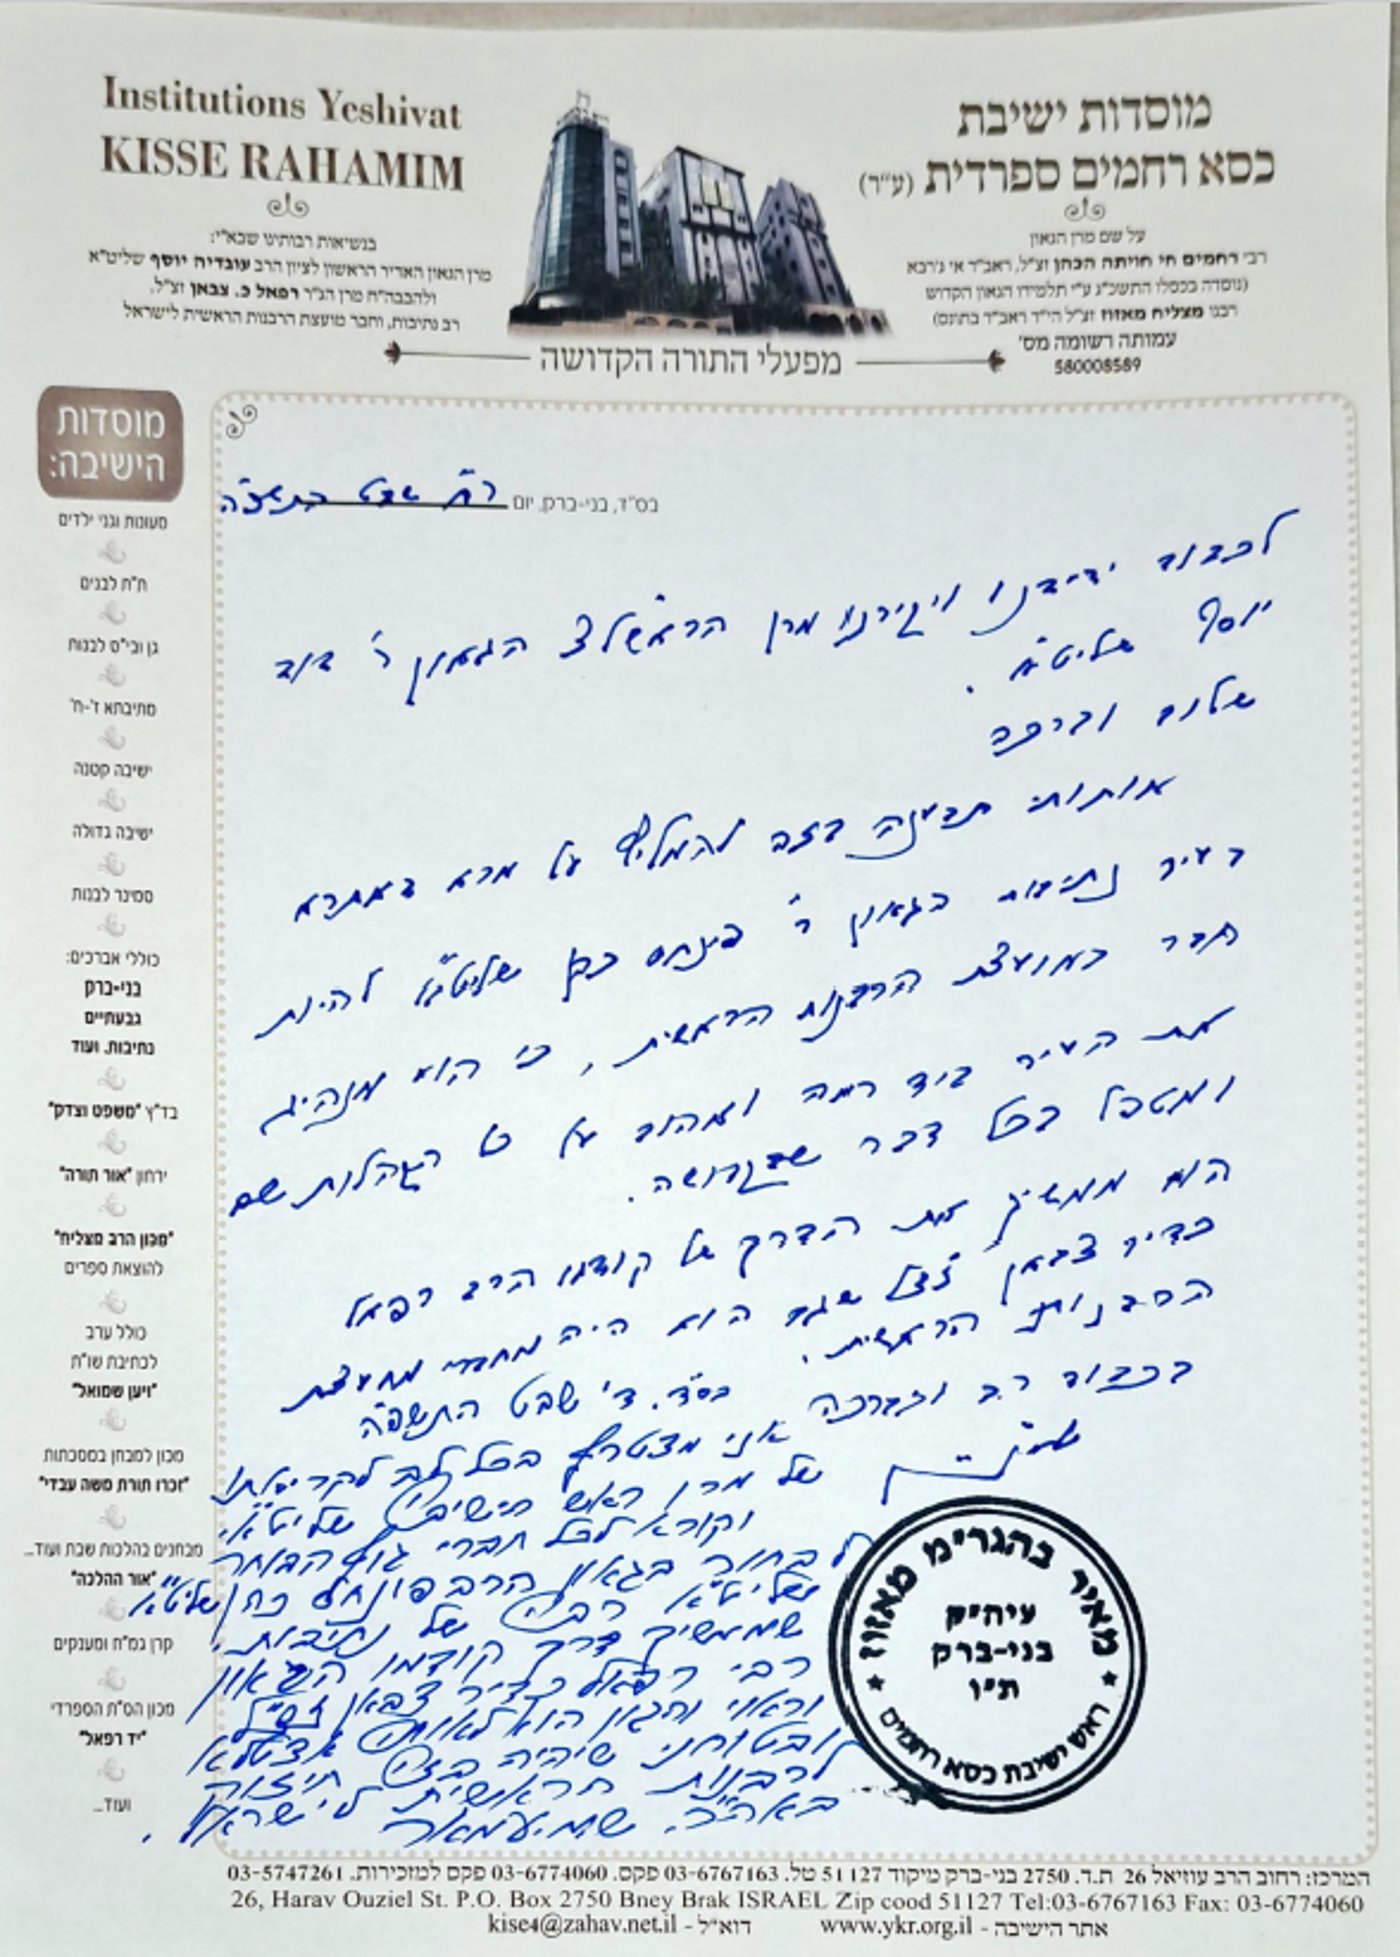 Institutions Yeshivat
KISSE RAHAMIM
בנשיאות רבותינו שבא"י:
מרן הגאון האדיר הראשון לציון הרב עובדיה יוסף שליט"א
ולהבבה"ח מרן הגר רפאל כ. צבאן זצ"ל,
רב נתיבות, וחבר מועצת הרבנות הראשית לישראל
מוסדות ישיבת
כסא רחמים ספרדית (ע"ר)
על שם מרן הגאון
רבי רחמים חי חויתה הכהן זצ"ל, ראב"ד אי ג'רבא
(נוסדה בכסלו התשכ"ג ע"י תלמידו הגאון הקדוש
רבנו מצליח מאזוז זצ"ל הי"ד ראב"ד בתונס)
עמותה רשומה מס'
580008589
מפעלי התורה הקדושה
מוסדות
הישיבה:
מעונות וגני ילדים
ת"ת לבנים
גן ובי"ס לבנות
מתיבתא ז'-ח'
ישיבה קטנה
ישיבה גדולה
סמינר לבנות
כוללי אברכים:
בני-ברק
גבעתיים
נתיבות. ועוד
בד"ץ "משפט וצדק"
ירחון "אור תורה"
"מכון הרב מצליח"
להוצאת ספרים
כולל ערב
לכתיבת שו"ת
"ויען שמואל"
מכון למבחן במסכתות
"זכרו תורת משה עבדי"
מבחנים בהלכות שבת ועוד...
"אור ההלכה"
קרן גמ"ח ומענקים
מכון הס"ת הספרדי
"יד רפאל"
ועוד...
בס"ד, בני-ברק, יום ר"ח שבט התשפ"ה
לכבוד ידידנו ויקירנו מרן הראשל"צ הגאון ר' דוד
יוסף שליט"א.
שלום וברכה
אותותי תבענה בזה להמליץ על מרא דאתרא
בעיר נתיבות הגאון ר' פינחס כהן שליט"א להיות
חבר במועצת הרבנות הראשית, כי הוא מנהיג
את העיר ביד רמה ואהוב על כל הקהלות שם
ומטפל בכל דבר שבקדושה.
הוא ממשיך את הדרך של קודמו הרב רפאל
כדיר צבאן זצ"ל שגם הוא היה מחברי מועצת
הרבנות הראשית.
בכבוד רב ובברכה
בס"ד. ד' שבט התשפ"ה
אני מצטרף בכל לב לקריאתו
של מרן ראש הישיבה שליט"א.
וקורא לכל חברי גוף הבוחר
לבחור בגאון הרב פינחס כהן שליט"א
שליט"א רבה של נתיבות.
שממשיך דרך קודמו הגאון
רבי רפאל כדיר צבאן זצ"ל
וראוי והגון הוא לאותה אצטלא
ובטוחני שיהיה בזה חיזוק
לרבנות הראשית לישראל.
מאיר בהגרימ מאזוז
עיה"ק
בני-ברק
ת"ו
ראש ישיבת כסא רחמים
המרכז: רחוב הרב עוזיאל 26 ת.ד. 2750 בני-ברק מיקוד 51127 טל. 03-6767163 פקס. 03-6774060 פקס למזכירות. 03-5747261
26, Harav Ouziel St. P.O. Box 2750 Bney Brak ISRAEL Zip cood 51127 Tel:03-6767163 Fax: 03-6774060
אתר הישיבה - www.ykr.org.il דוא"ל - kise4@zahav.net.il